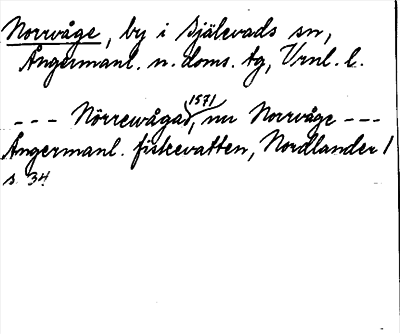 Norrvåge, by i Själevads sn,
Ångermanl. n. doms. tg, Vrnl. l.
1571
--- Nörrewågas, nu Norrvåge ---
Ångermanl. fiskevatten, Nordlander 1
s 34